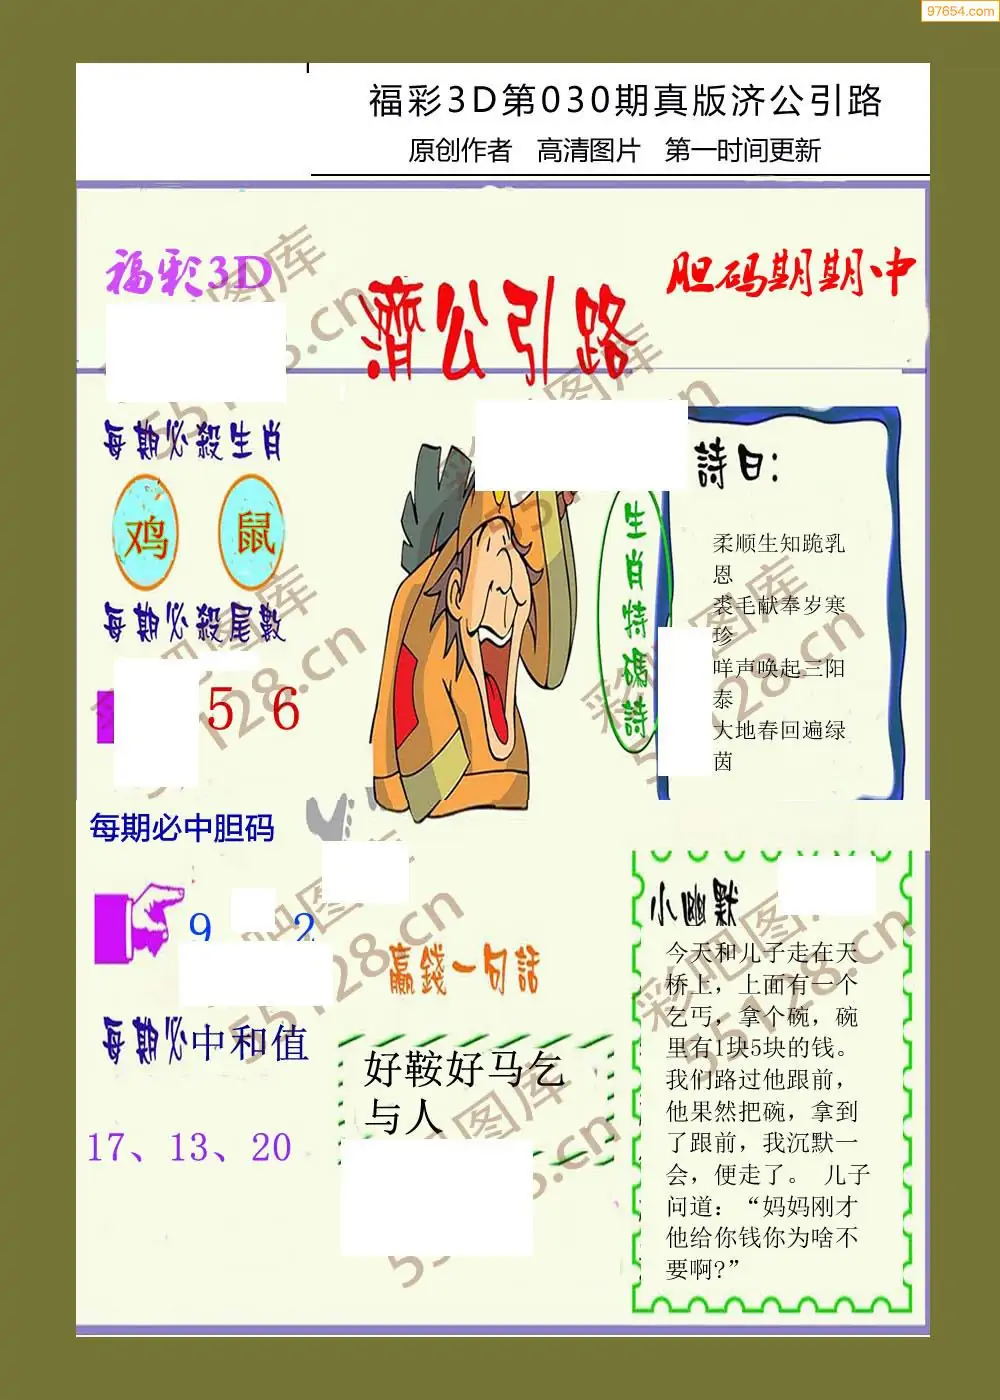 97654.com
福彩3D第030期真版济公引路
原创作者 高清图片 第一时间更新
福彩3D
濟公引路
胆码期期中
每期必殺生肖
鸡 鼠
每期必殺尾數
5 6
每期必中胆码
9 2
每期必中和值
17、13、20
生肖特碼詩
詩曰:
柔顺生知跪乳
恩
裘毛献奉岁寒
珍
咩声唤起三阳
泰
大地春回遍绿
茵
贏錢一句話
好鞍好马乞
与人
小幽默
今天和儿子走在天
桥上，上面有一个
乞丐，拿个碗，碗
里有1块5块的钱。
我们路过他跟前，
他果然把碗，拿到
了跟前，我沉默一
会，便走了。 儿子
问道：“妈妈刚才
他给你钱你为啥不
要啊?”
彩吧图库
55128.cn